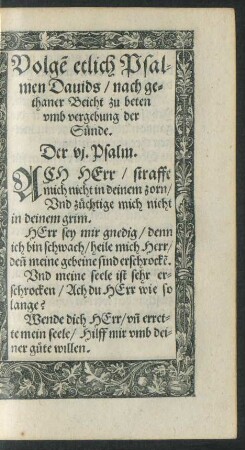 Volgẽ etlich Psal-
men Dauids / nach ge-
thaner Beicht zu beten
vmb vergebung der
Sünde.
Der vj. Psalm.
ACH HErr / straffe
mich nicht in deinem zorn /
Vnd züchtige mich nicht
in deinem grim.
HErr sey mir gnedig / denn
ich bin schwach / heile mich Herr /
deñ meine gebeine sind erschrockẽ.
Vnd meine seele ist sehr er-
schrocken / Ach du HErr wie so
lange?
Wende dich HErr / vñ erret-
te mein seele / Hilff mir vmb dei-
ner güte willen.